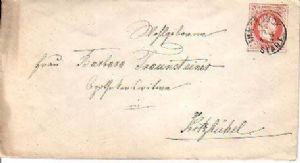 Wohlgeboren
Frau Barbara Traunsteiner
Apothekerswitwe
in
Kitzbühel